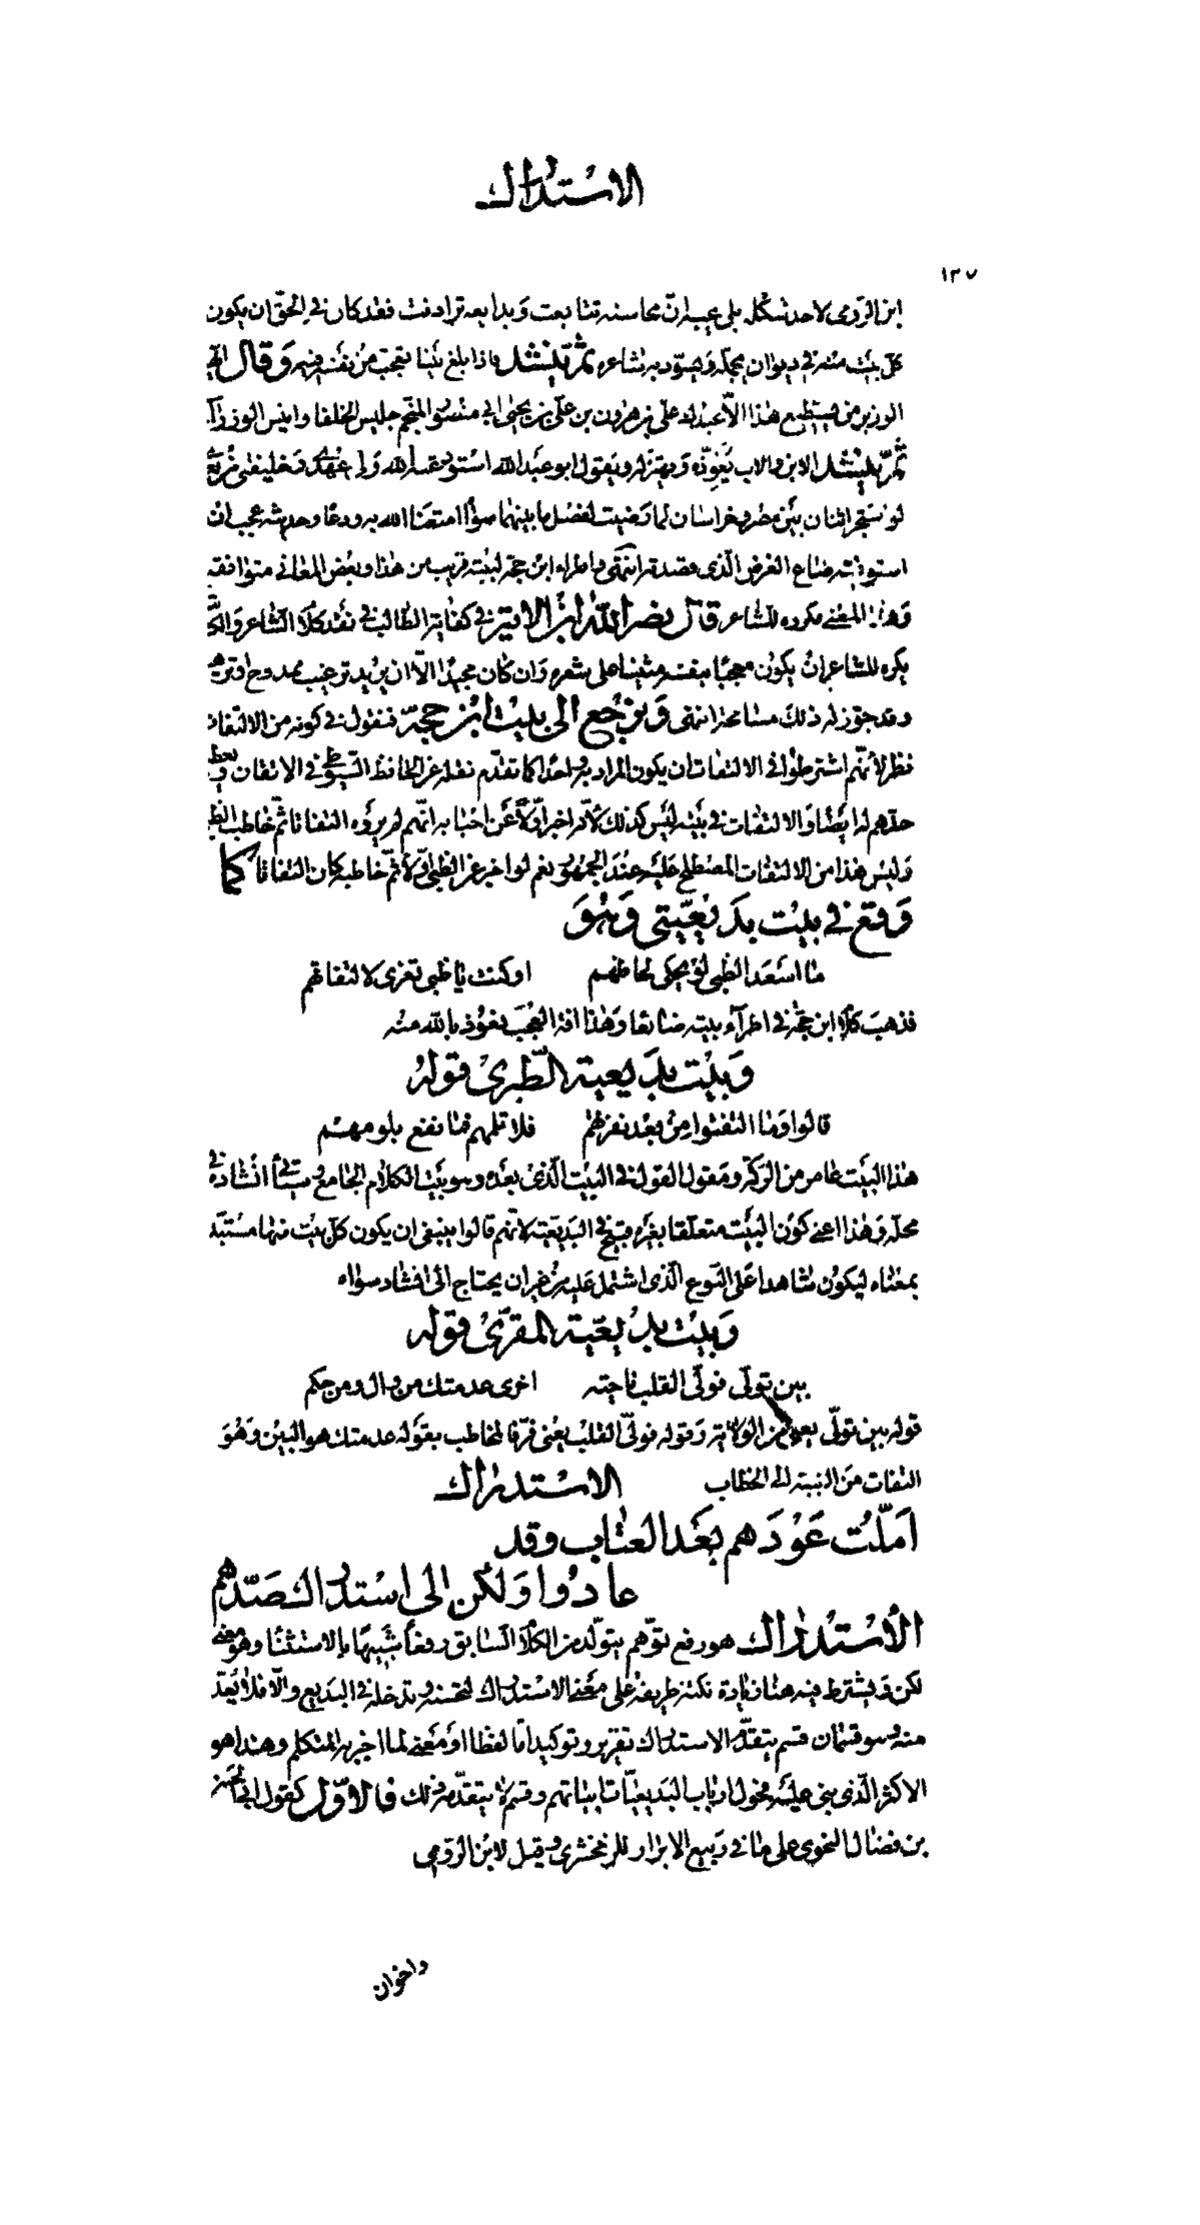 الاستدراك
١٣٧
ابن الرومى لاحد شكله بلى عيبه انّ محاسنه تتابعت وبدايعه ترادفت فقد كان في الحقّ ان يكون
كل بيت منه في ديوان يحمله ويسود به شاعره ثمّ ينشد فاذا بلغ بيتا يعجب من نفسه فيه وقال ايّها
الوزير من يستطيع هذا الّا عبدك على بن هرون بن على بن يحيى ابى منصور المنجّم جليس الخلفا وانيس الوزرآء
ثمّ ينشد الابن والاب يعوّذه ويهتزله ويقول ابو عبد الله استودعه الله ولى عهدى وخليفتى من بعدى
لو ستجر اثنان بين مصر وخراسان لما رضيت لفصل ما بينهما سواه امتعنا الله به ورعاه وحديثه عجب ان
استوفيته ضاع الغرض الّذى قصدته انتهى واطراء ابن حجّة لبيته قريب من هذا وبعض المعانى متوافقة
وهذا المعنى مكروه للشاعر قال نصر الله ابن الاثير في كفاية الطالب في نقد كلام الشاعر والكاتب
يكره للشاعر ان يكون معجبا بنفسه مثنيا على شعره وان كان مجيدا الّا ان يريد ترغيب ممدوح او ترهيبه
وقد جوّز له ذلك مسامحة انتهى ونرجع الى بيت ابن حجّة فنقول في كونه من الالتفات
نظر لانّهم اشترطوا في الالتفات ان يكون المراد به واحدا كما تقدّم نقله عن الحافظ السّيوطى في الاتقان ويعطيه
حدّهم له ايضا والالتفات في بيته ليس كذلك لانّه اخبر اوّلا عن احبابه انّهم لم يروه التفاتا ثمّ خاطب الظبى
وليس هذا من الالتفات المصطلح عليه عند الجمهور نعم لو اخبر عن الظبى اوّلا ثمّ خاطبه كان التفاتا كما
وقع في بيت بديعيّتى وهو
ما اسعد الظبى لو يحكى لحاظهم او كنت يا ظبى تعزى لالتفاتهم
فذهب كلام ابن حجّة في اطرآء بيته ضائعا وهذا افة العجب نعوذ بالله منه
وبيت بديعية الطبرى قوله
قالوا وما التفتوا من بعد نفرتهم فلا تلمهم فما نفع بلومهم
هذا البيت عامر من الركة ومقول القول في البيت الّذى بعده وهو بيت الكلام الجامع وسيأتى انشاده في
محلّه وهذا اعنى كون البيت متعلقا بغيره قبيح في البديعيّة لانّهم قالوا ينبغى ان يكون كل بيت منها مستبدّ
بمعناه ليكون شاهدا على النّوع الّذى اشتمل عليه من غير ان يحتاج الى انشاد سواه
وبيت بديعيّة المقرّى قوله
بين تولّى فولّى القلب ناحيته اخرى عدمتك من وال ومن حكم
قوله بين تولّى يعنى من الولاية وقوله فولّى القلب يعنى فرّ فالمخاطب بقوله عدمتك هو البين وهو
التفات من الغيبة الى الخطاب الاستدراك
امّلت عودهم بعد العتاب وقد
عادوا ولكن الى استدراك صدّهم
الاستدراك هو رفع توّهم يتولّد من الكلام السّابق رفعا شبيها بالاستثنا وهو معنى
لكن ويشترط فيه هنا زيادة نكتة طريفة على معنى الاستدراك لتحسنه وتدخله في البديع والّا فلا يعدّ
منه وهو قسمان قسم يتقدّم الاستدراك تقرير وتوكيد امّا لفظا او معنى لما اخبر به المتكلم وهذا هو
الاكثر الّذى بنى عليه فحول ارباب البديعيّات ابياتهم وقسم لا يتقدّمه ذلك فالاوّل كقول ابى الحسن
بن فضال النحوى على ما في ربيع الابرار للزمخشرى وقيل لابن الرّومى
واخوان